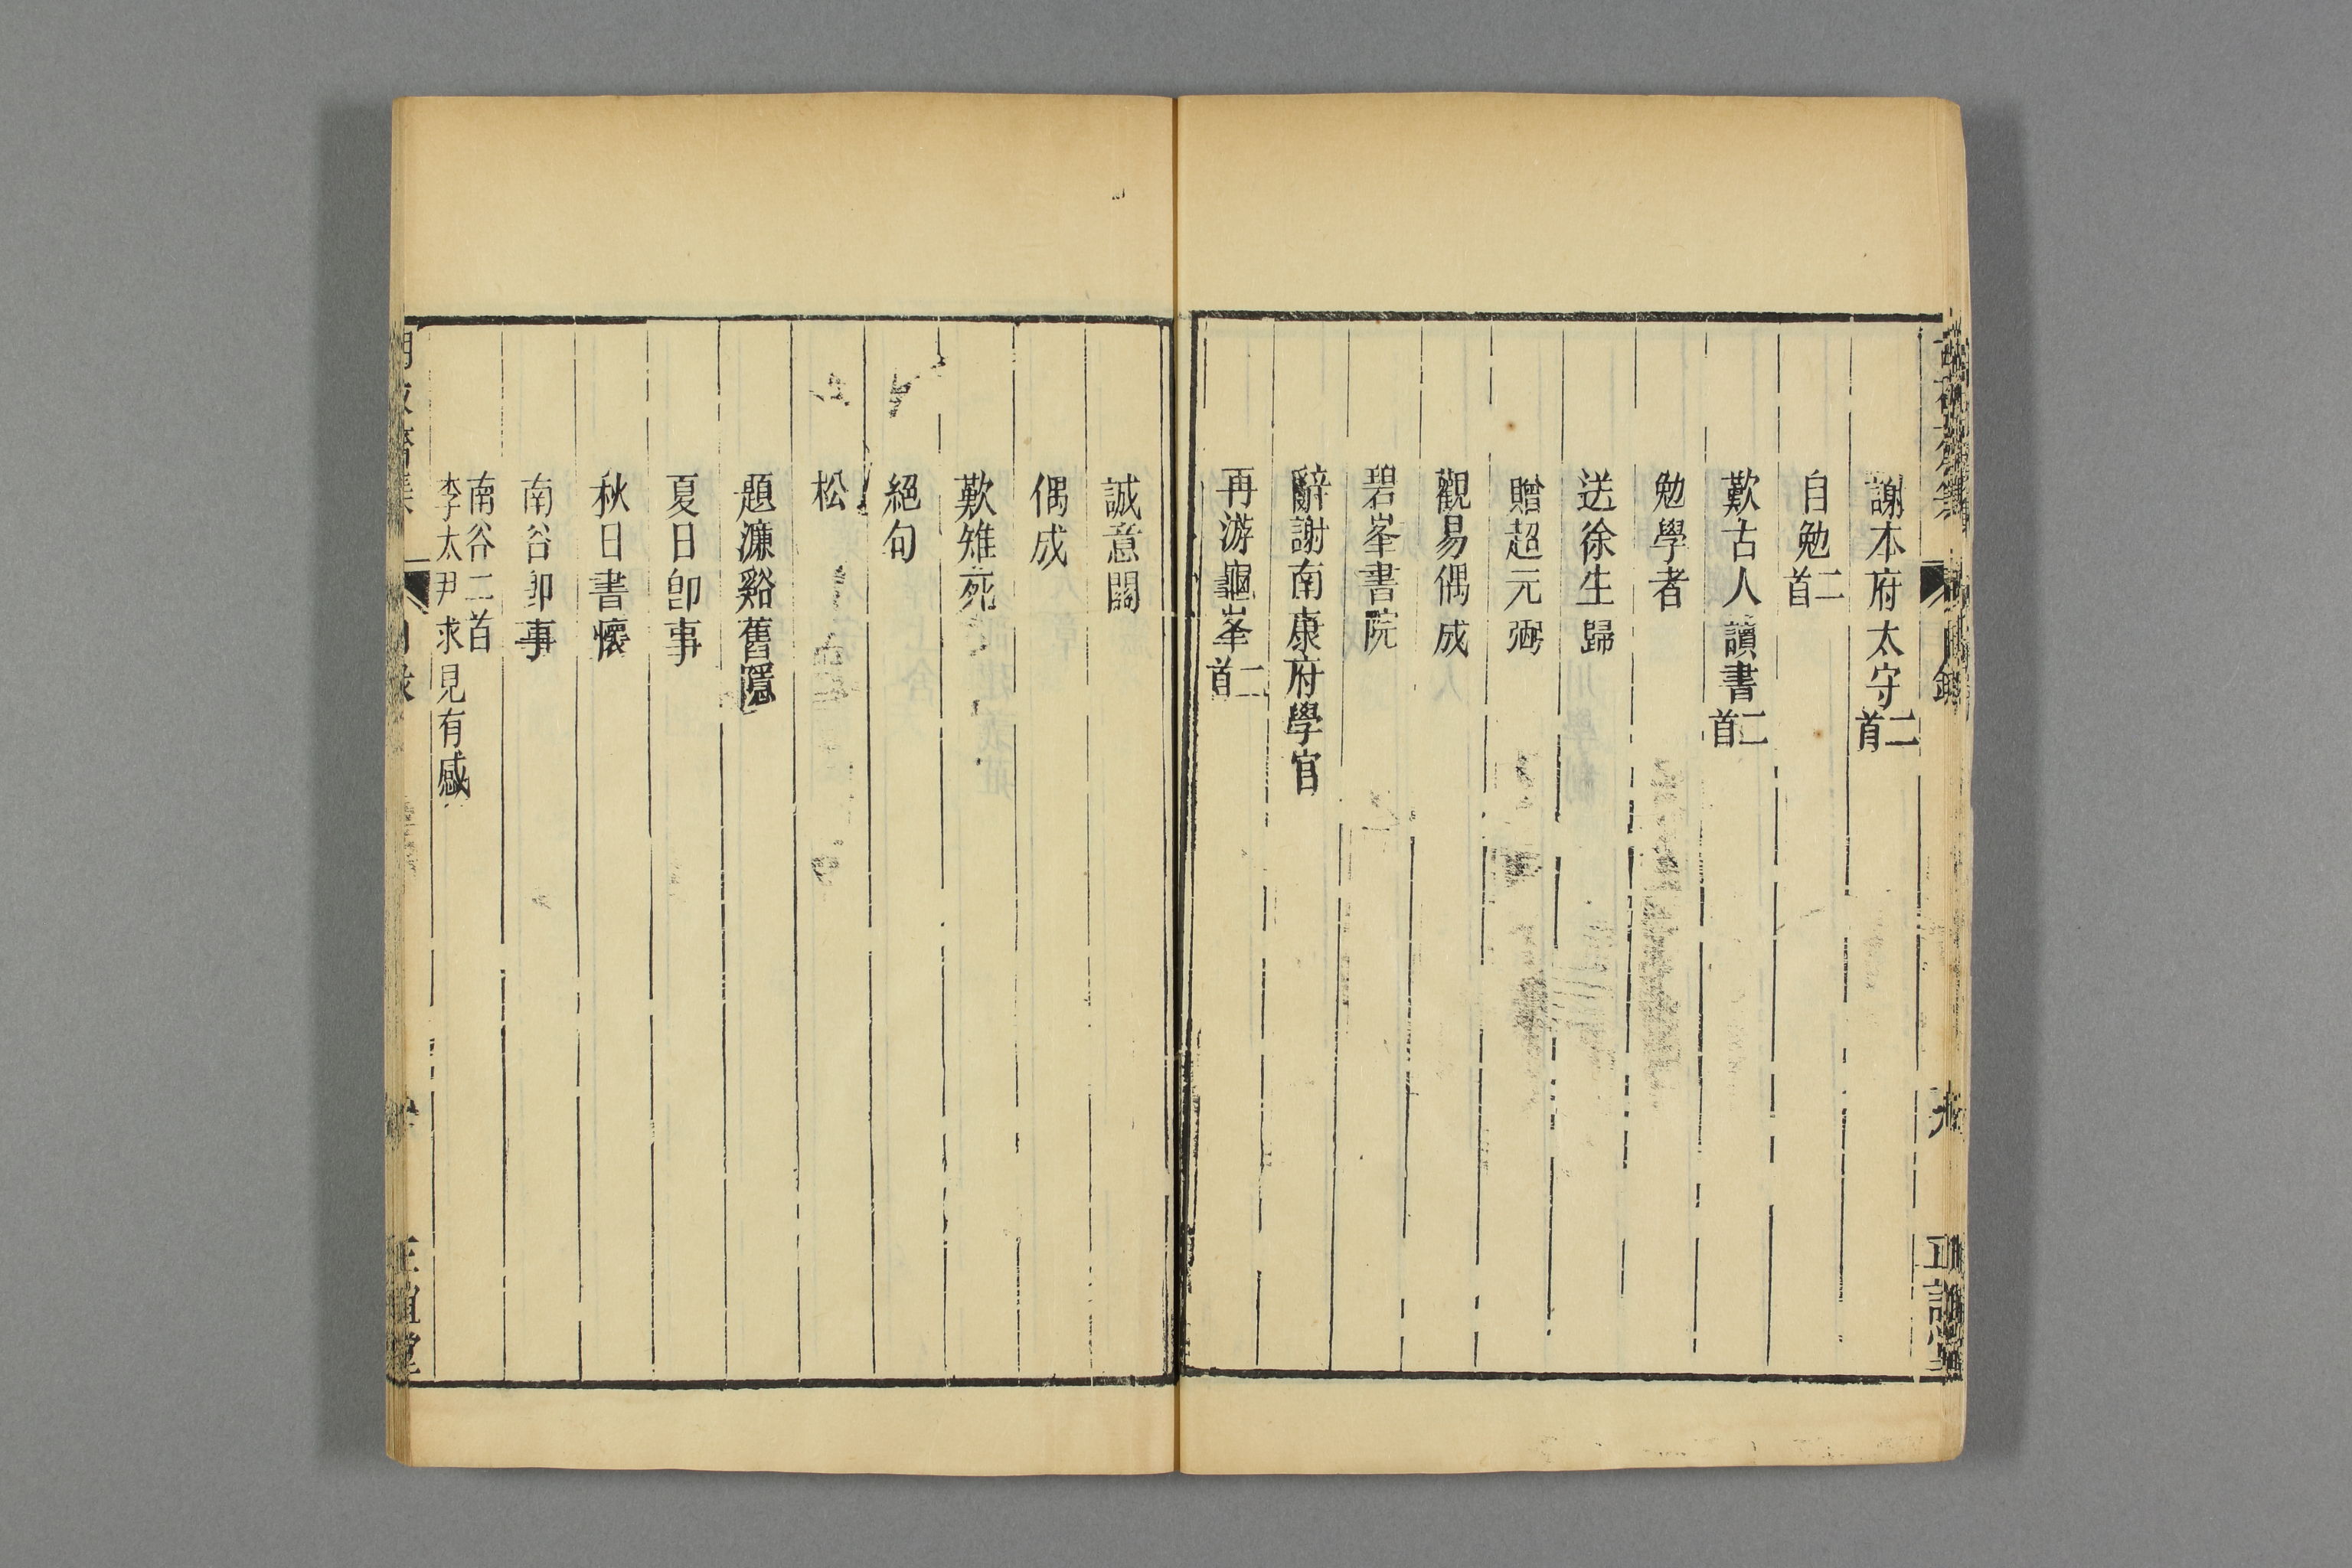 謝本府太守二首
自勉二首
歎古人讀書二首
勉學者
送徐生歸
贈超元弼
觀易偶成
碧峯書院
辭謝南康府學官
再游龜峯二首
誠意關
偶成
歎雉死
絕句
松
題濂谿舊隱
夏日卽事
秋日書懷
南谷卽事
南谷二首
李太尹求見有感